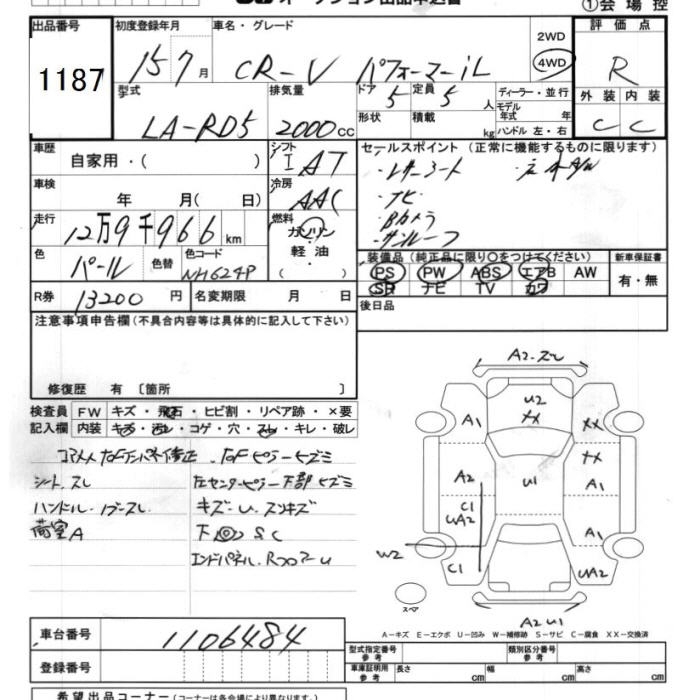 オークション出品申込書
①会場控
出品番号
1187
初度登録年月
15 7月
車名・グレード
CR-V パフォーマiL
2WD
4WD
評価点
R
型式
LA-RD5
排気量
2000cc
ドア
5
定員
5人
形状
積載
kg
ディーラー・並行
モデル年式 年
ハンドル 左・右
外装
内装
C
C
車歴
自家用・( )
シフト
I AT
セールスポイント (正常に機能するものに限ります)
・レザーシート
・ナビ
・Bカメラ
・サンルーフ
車検
年 月( 日)
冷房
AAC
走行
12万9千966km
燃料
ガソリン
軽油
・
( )
色
パール
色替
色コード
NH624P
装備品 (純正品に限り○をつけてください)
PS PW ABS エアB AW
SR ナビ TV カワ
新車保証書
有・無
R券
13200円
名変期限 月 日
後日品
注意事項申告欄(不具合内容等は具体的に記入して下さい)
修復歴 有 〔箇所 〕
検査員記入欄
FW キズ・飛石・ヒビ割・リペア跡・×要
内装 キズ・汚レ・コゲ・穴・スレ・キレ・破レ
シート.スレ
左センターピラー下部ヒズミ
ハンドル.
キズ-U.
荷室A
下回SC
エンドパネル.RフロアーU
A1
U2
XX
XX
XX
A2
U1
A1
C1
UA2
A1
W2
C1
UA2
スペア
A2 U1
A-キズ E-エクボ U-凹み W-補修跡 S-サビ C-腐食 XX-交換済
車台番号
1106484
登録番号
型式指定番号
参考
類別区分番号
参考
車庫証明用
参考
長さ cm
幅 cm
高さ cm
希望出品コーナー(コーナーは各会場により異なります)